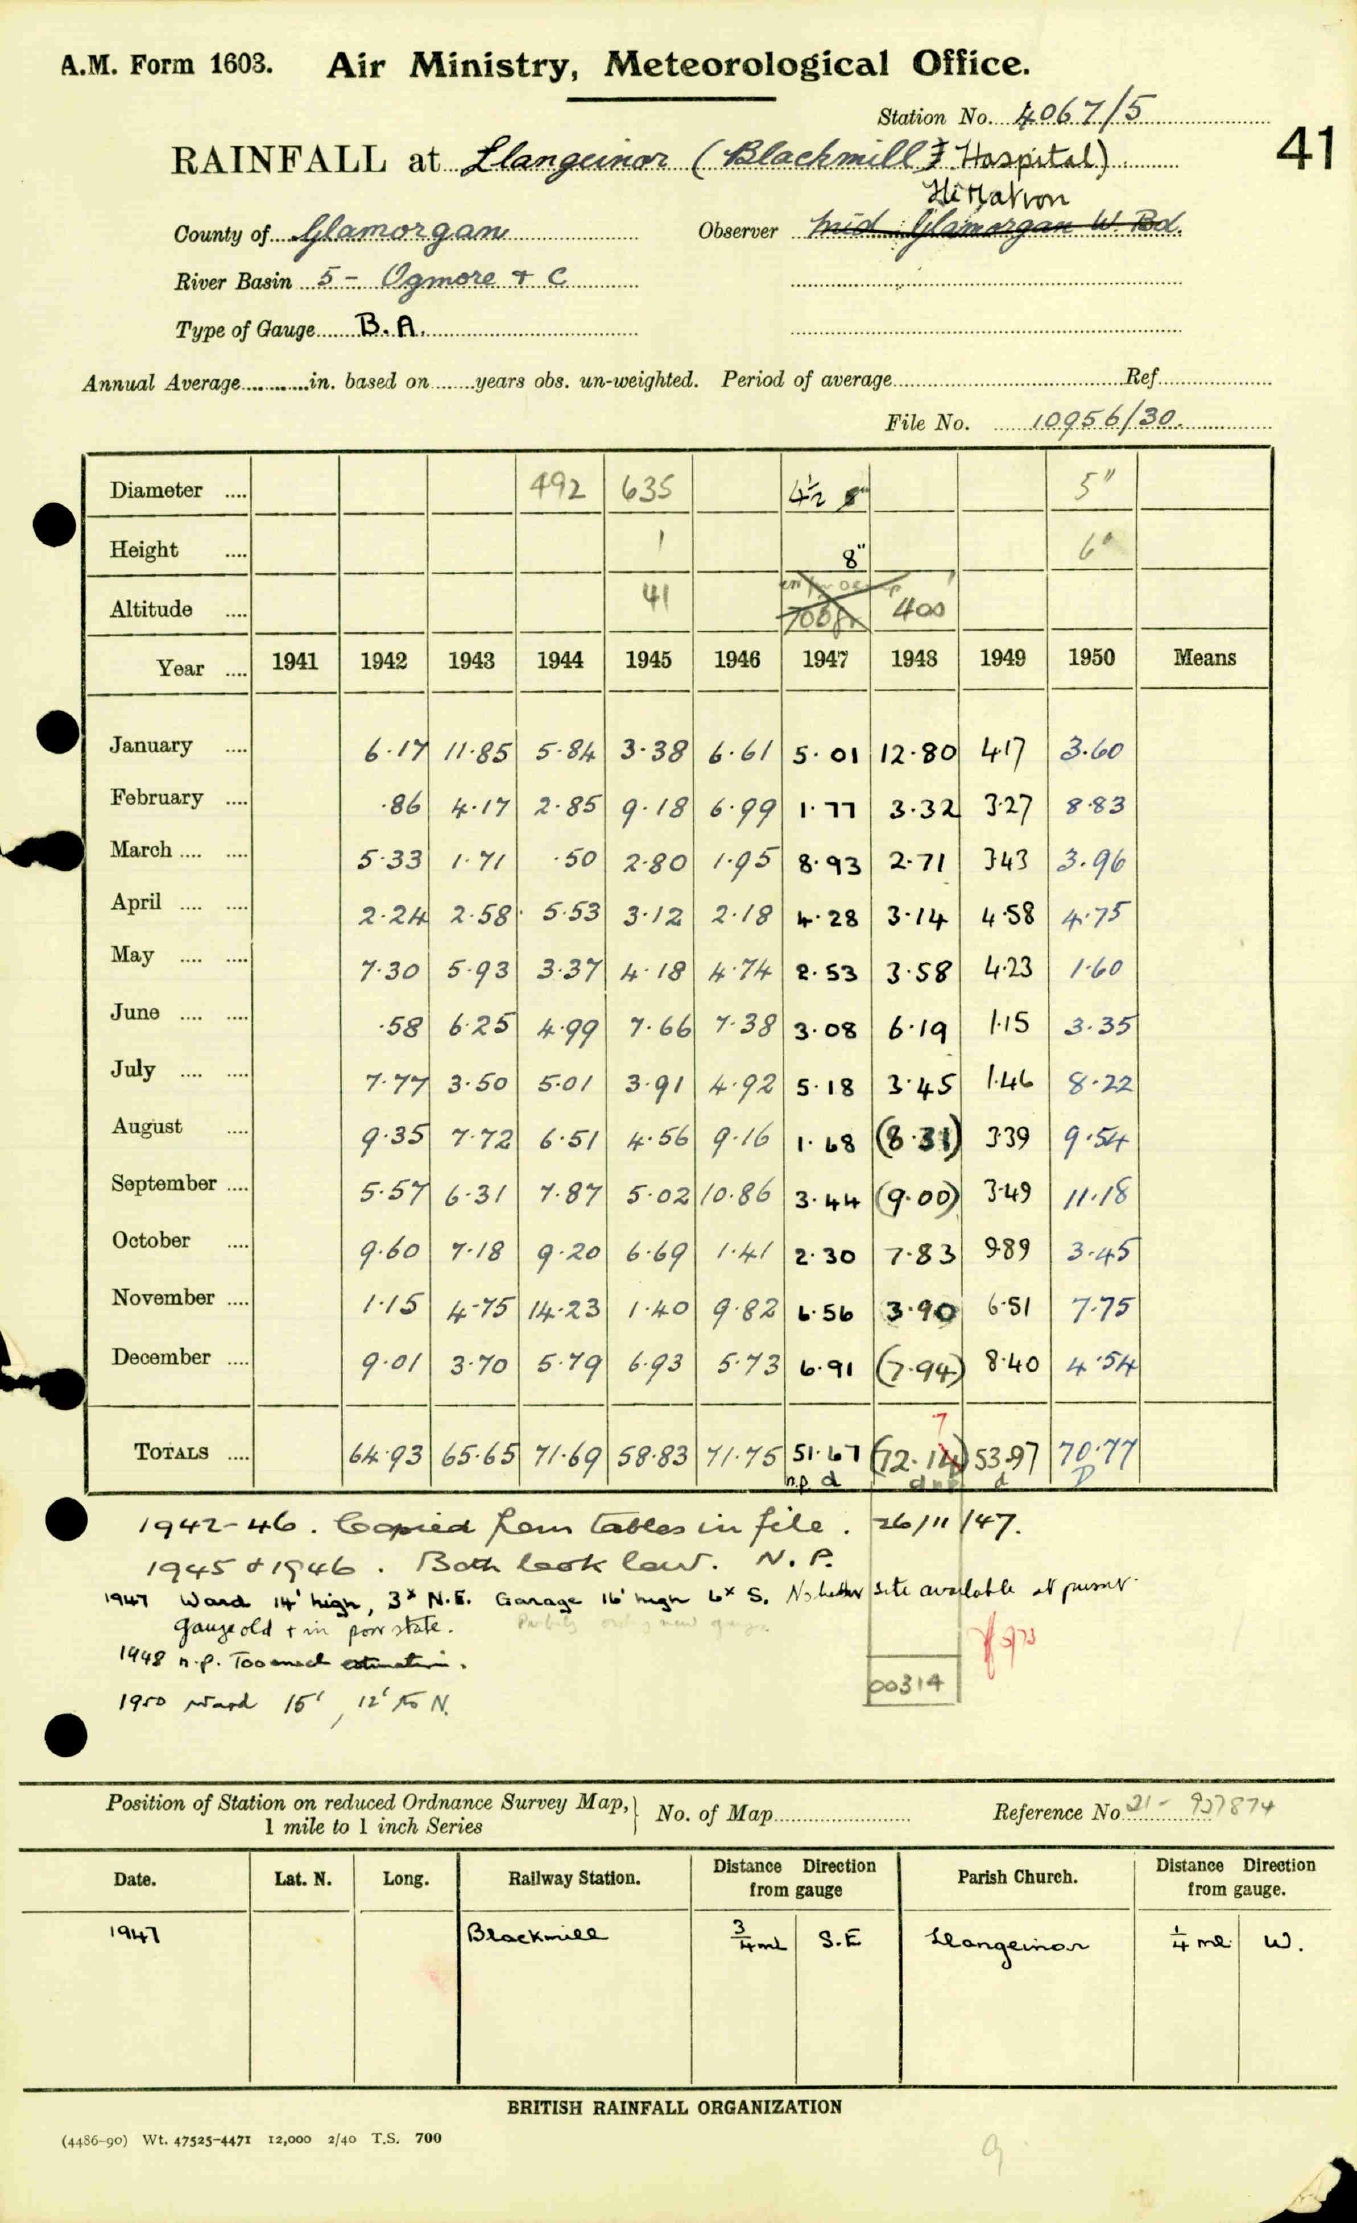 A.M. Form 1603. Air Ministry, Meteorological Office.
Station No. 4067/5
41
RAINFALL at Llangeinor (Blackmill Hospital)
Matron
County of Glamorgan Observer Mid Glamorgan W. Bd.
River Basin 5 - Ogmore + C
Type of Gauge B.A.
Annual Average in. based on years obs. un-weighted. Period of average Ref
File No. 10956/30.
Diameter 492 635 4½ 8" 5"
Height 1 8" 6"
Altitude 41 700ft 400'
Year 1941 1942 1943 1944 1945 1946 1947 1948 1949 1950 Means
January 6.17 11.85 5.84 3.38 6.61 5.01 12.80 4.17 3.60
February .86 4.17 2.85 9.18 6.99 1.77 3.32 3.27 8.83
March 5.33 1.71 .50 2.80 1.95 8.93 2.71 3.43 3.96
April 2.24 2.58 5.53 3.12 2.18 4.28 3.14 4.58 4.75
May 7.30 5.93 3.37 4.18 4.74 2.53 3.58 4.23 1.60
June .58 6.25 4.99 7.66 7.38 3.08 6.19 1.15 3.35
July 7.77 3.50 5.01 3.91 4.92 5.18 3.45 1.46 8.22
August 9.35 7.72 6.51 4.56 9.16 1.68 (8.31) 3.39 9.54
September 5.57 6.31 7.87 5.02 10.86 3.44 (9.00) 3.49 11.18
October 9.60 7.18 9.20 6.69 1.41 2.30 7.83 9.89 3.45
November 1.15 4.75 14.23 1.40 9.82 6.56 3.90 6.51 7.75
December 9.01 3.70 5.79 6.93 5.73 6.91 (7.94) 8.40 4.54
7
TOTALS 64.93 65.65 71.69 58.83 71.75 51.67 (72.14) 53.97 70.77
n.p. d d n.p. d D
1942-46. Copied from tables in file. 26/11/47.
1945 & 1946. Both look low. N.P.
1947 Ward 14' high, 3x N.E. Garage 16' high 6x S. No better site available at present.
Gauge old + in poor state.
1948 n.p. Too much estimation.
00314
1950 Ward 15', 12' to N.
Position of Station on reduced Ordnance Survey Map, No. of Map Reference No 21 - 927874
1 mile to 1 inch Series
Date. Lat. N. Long. Railway Station. Distance Direction from gauge Parish Church. Distance Direction from gauge.
1947 Blackmill ¾ ml S.E Llangeinor ¼ ml W.
BRITISH RAINFALL ORGANIZATION
(4486-90) Wt. 47525-4471 12,000 2/40 T.S. 700
9